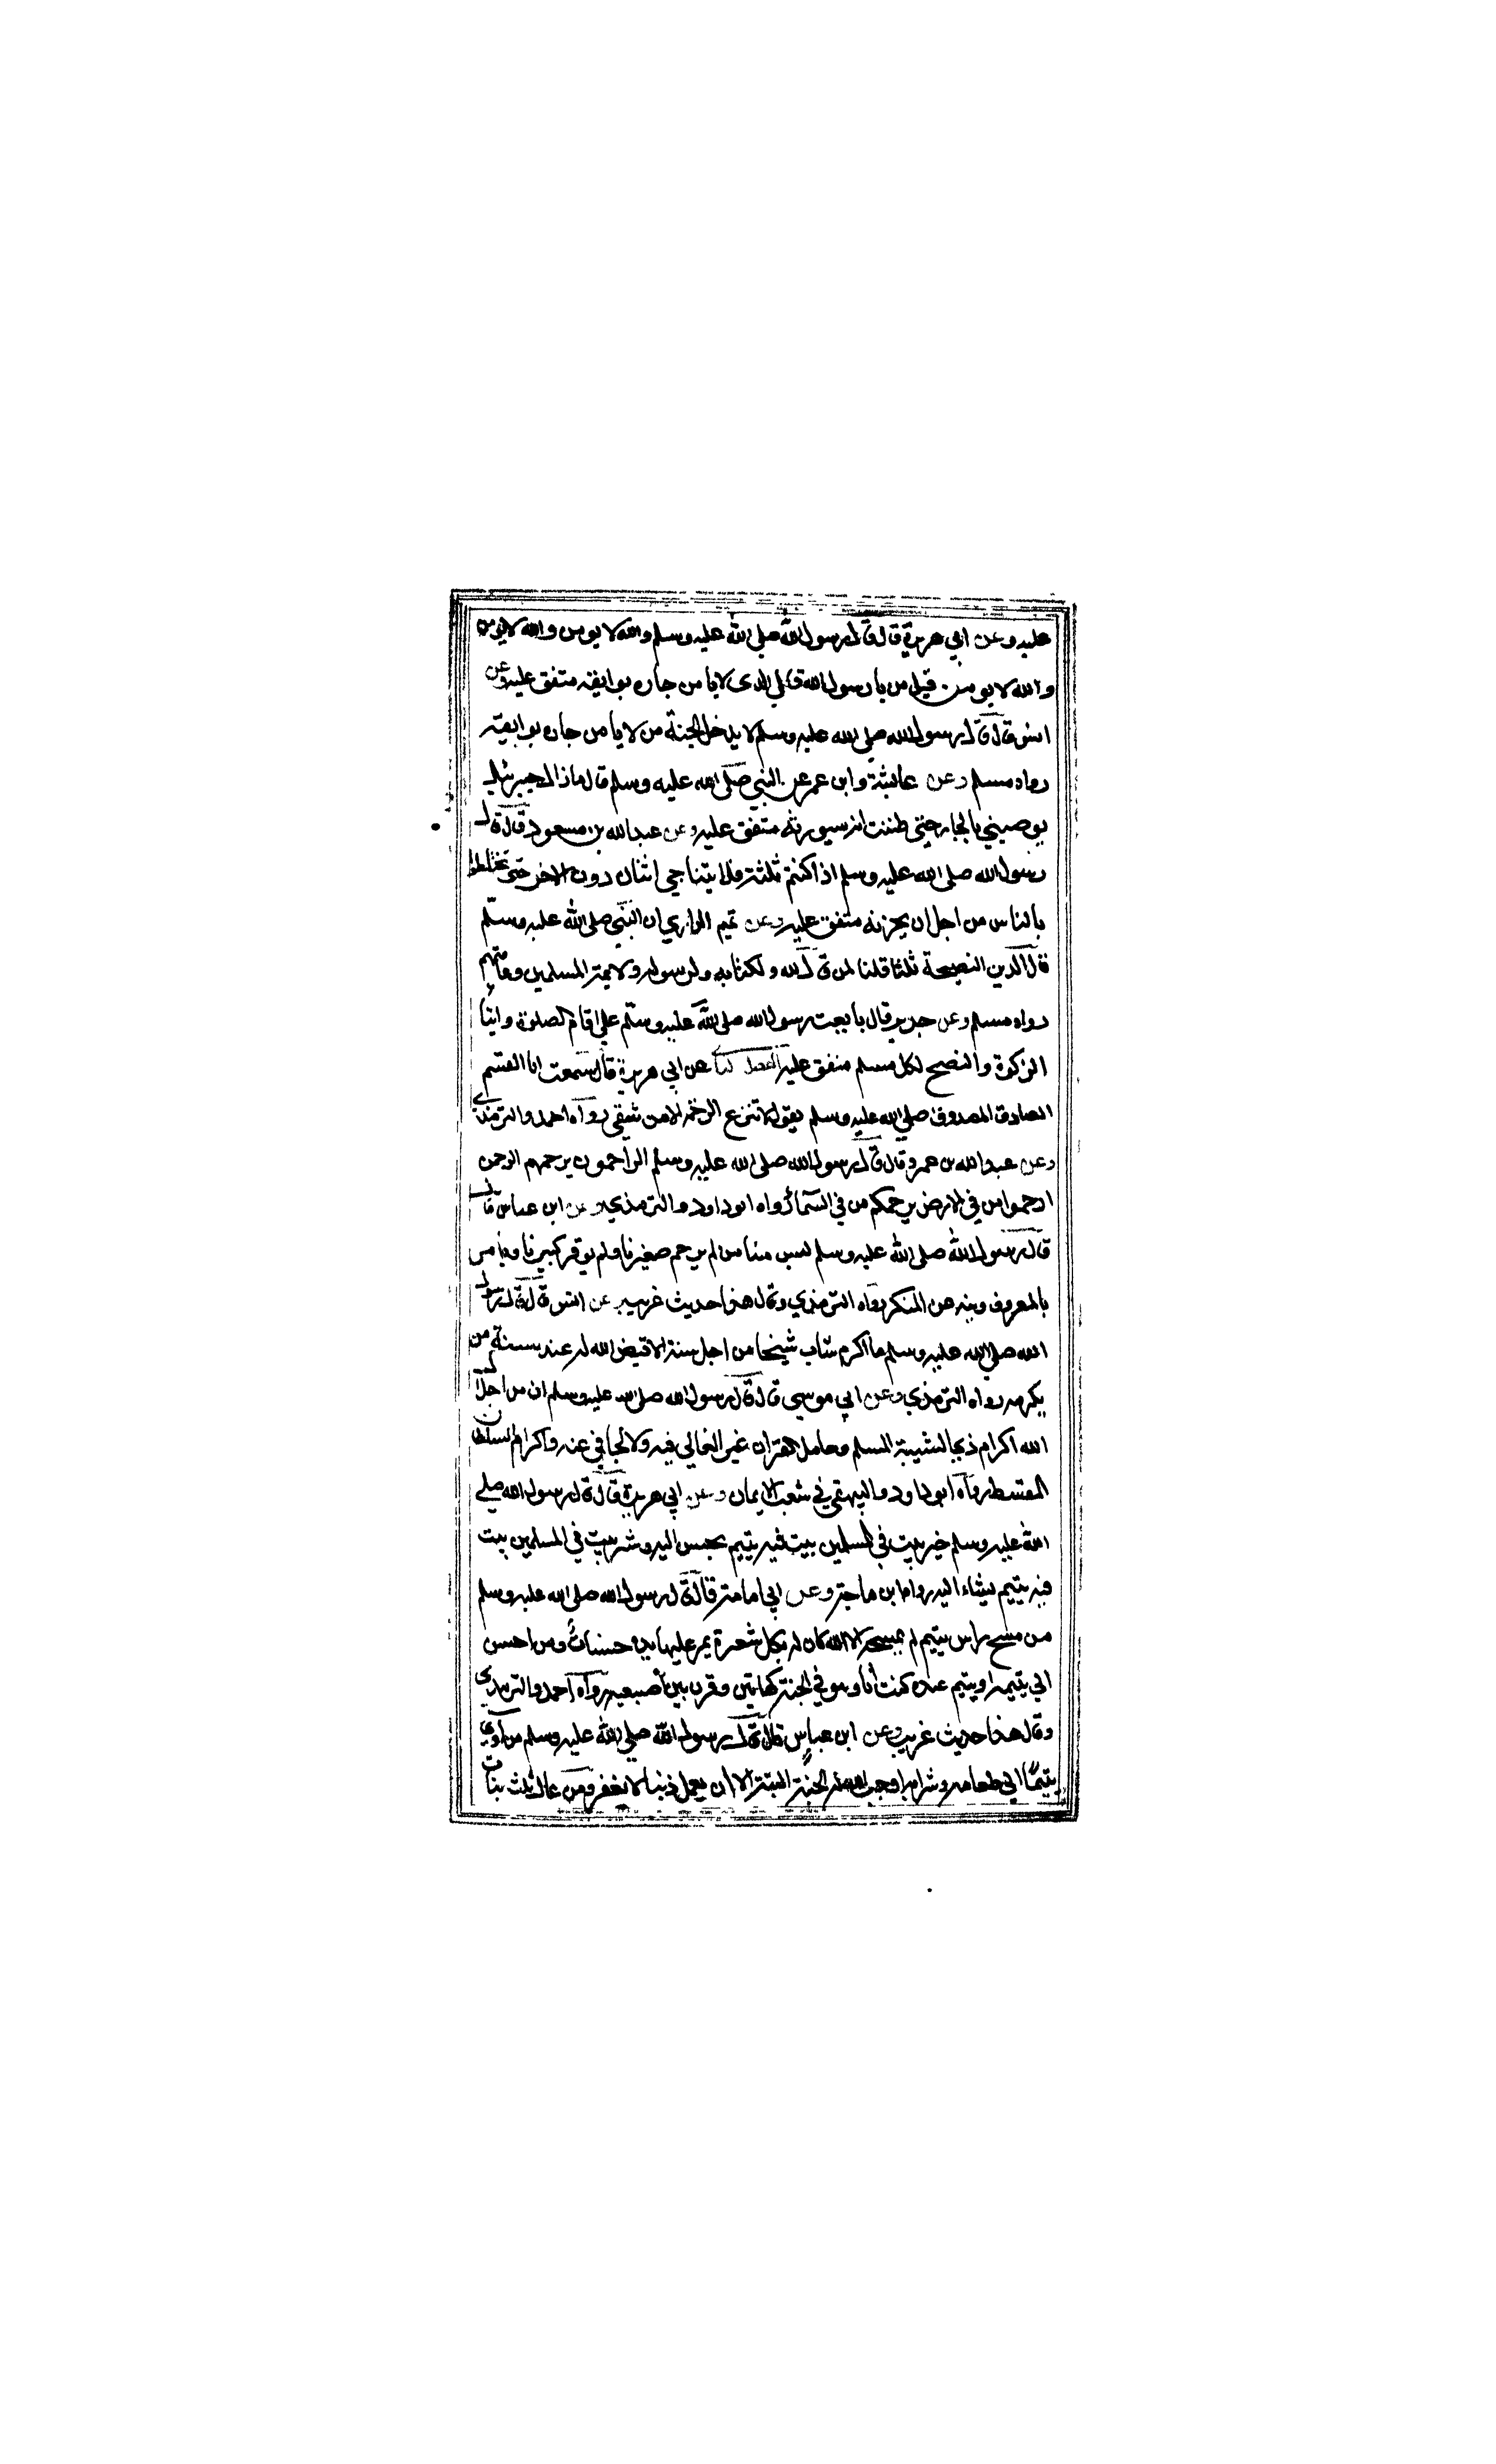 عليه وعن ابي هريرة قال قال رسول الله صلي الله عليه وسلم والله لا يومن والله لا يومن
والله لا يومن قيل من يا رسول الله قال الذي لا يامن جاره بوايقه متفق عليه وعن
انس قال قال رسول الله صلي الله عليه وسلم لا يدخل الجنة من لا يامن جاره بوايقه
رواه مسلم وعن عايشة وابن عمر عن النبي صلي الله عليه وسلم قال ماذال جبرئيل
يوصيني بالجار حتي ظننت انه سيورثه متفق عليه وعن عبد الله بن مسعود قال قال
رسول الله صلي الله عليه وسلم اذا كنتم ثلثة فلا يتناجي اثنان دون الاخر حتي تختلطوا
بالناس من اجل ان يحزنه متفق عليه وعن تميم الداري ان النبي صلي الله عليه وسلم
قال الدين النصيحة ثلثا قلنا لمن قال لله ولكتابه ولرسوله ولايمة المسلمين وعامتهم
رواه مسلم وعن جرير قال بايعت رسول الله صلي الله عليه وسلم علي اقام الصلوة وايتا
الزكوة والنصح لكل مسلم متفق عليه الفصل عن ابي هريرة قال سمعت ابا القسم
الصادق المصدوق صلي الله عليه وسلم يقول لا تنزع الرحمة الا من شقي رواه احمد والترمذي
وعن عبد الله بن عمرو قال قال رسول الله صلي الله عليه وسلم الراحمون يرحمهم الرحمن
ارحموا من في الارض يرحمكم من في السماء رواه ابو داود والترمذي وعن ابن عباس قال
قال رسول الله صلي الله عليه وسلم ليس منا من لم يرحم صغيرنا ولم يوقر كبيرنا ويامر
بالمعروف وينه عن المنكر رواه الترمذي وقال هذا حديث غريب وعن انس قال قال رسول
الله صلي الله عليه وسلم ما اكرم شاب شيخا من اجل سنة الا قيض الله له عند سنة من
يكرمه رواه الترمذي وعن ابي موسي قال قال رسول الله صلي الله عليه وسلم ان من اجلال
الله اكرام ذي الشيبة المسلم وحامل القران غير الغالي فيه ولا الجافي عنه واكرام السلطان
المقسط رواه ابو داود والبيهقي في شعب الايمان وعن ابي هريرة قال قال رسول الله صلي
الله عليه وسلم خير بيت في المسلمين بيت فيه يتيم يحسن اليه وشر بيت في المسلمين بيت
فيه يتيم يساء اليه رواه ابن ماجة وعن ابي امامة قال قال رسول الله صلي الله عليه وسلم
من مسح راس يتيم لم يمسحه الا لله كان له بكل شعرة يمر عليها يده حسنات ومن احسن
الي يتيمة او يتيم عنده كنت انا وهو في الجنة كهاتين وقرن بين اصبعيه رواه احمد والترمذي
وقال هذا حديث غريب وعن ابن عباس قال قال رسول الله صلي الله عليه وسلم من آوي
يتيمًا الي طعامه وشرابه اوجب الله له الجنة البتة الا ان يعمل ذنبا لا يغفر ومن عال ثلث بنات